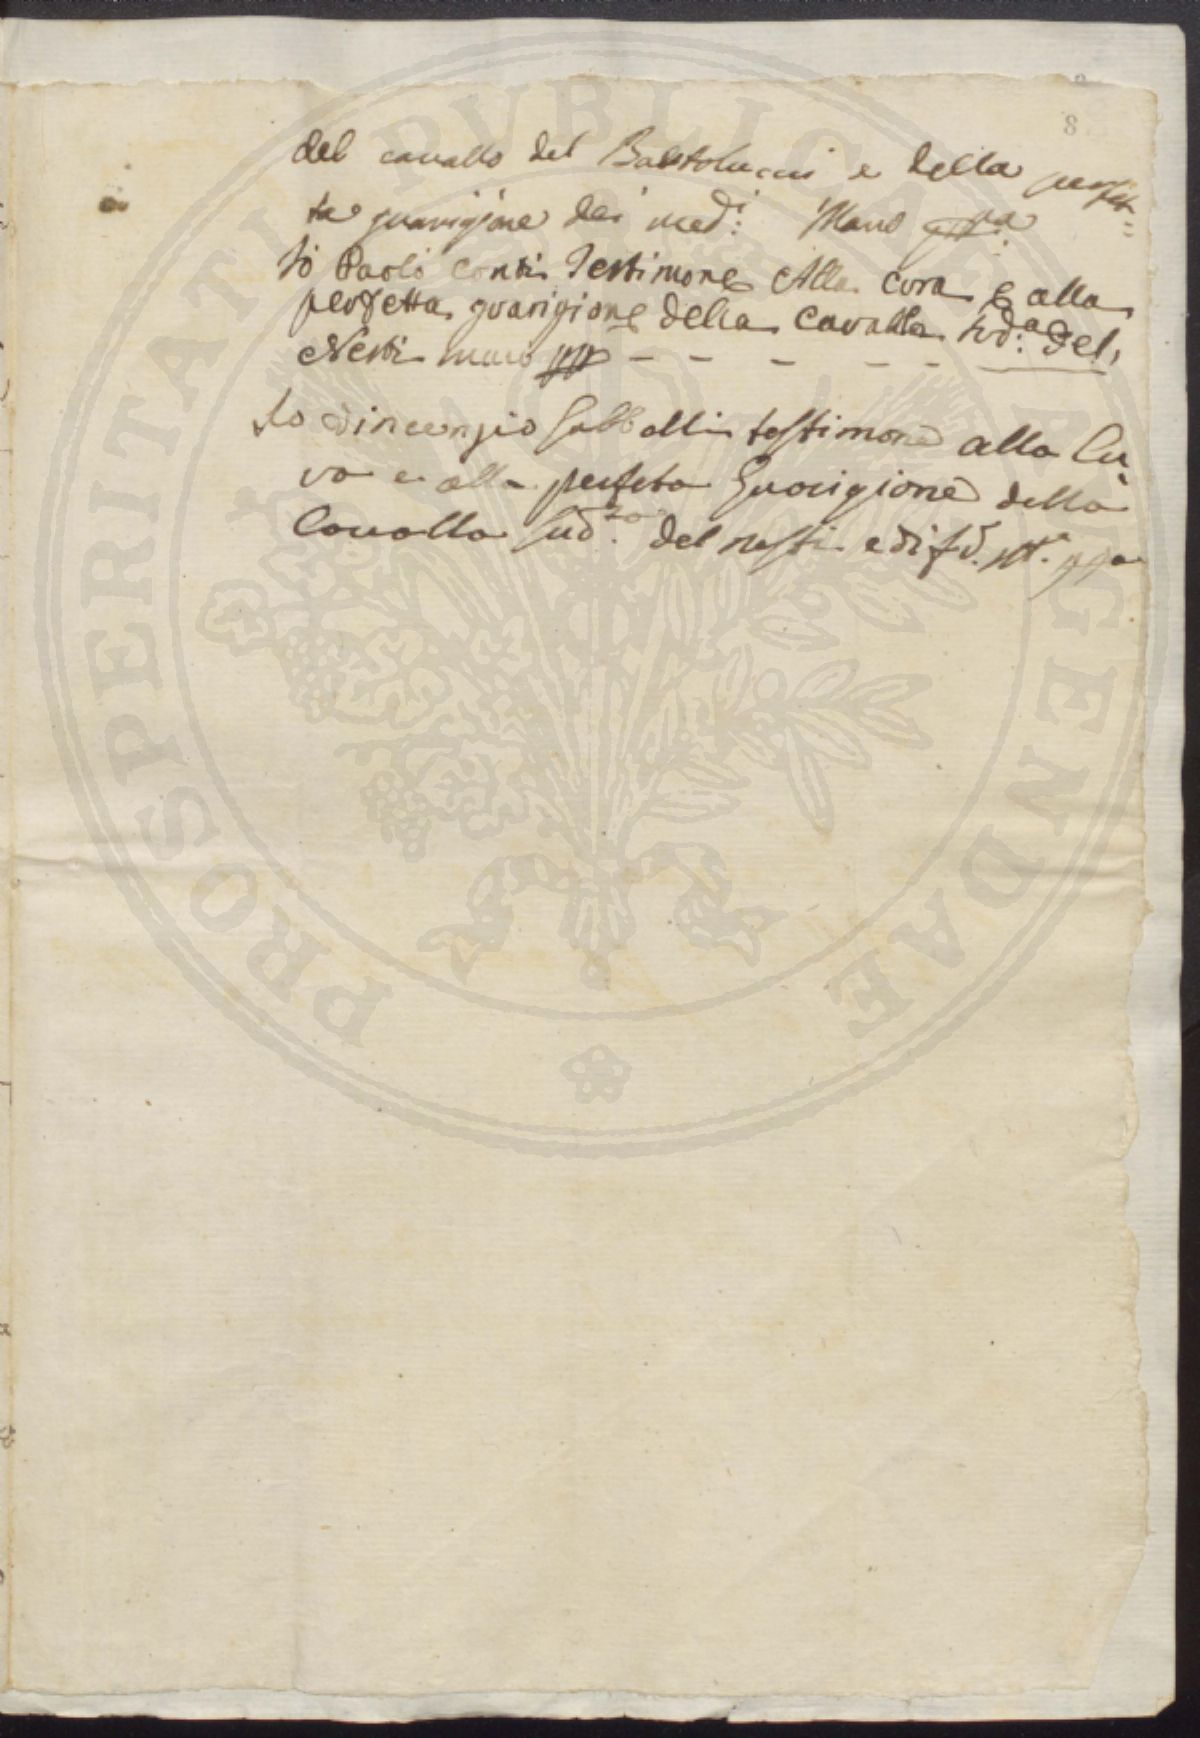 8
del cavallo del Bartolucci e della perfet=
ta guarigione dei med:i Mano pp:a
Io Paolo Conti Testimone Alla cura e alla
perfetta guarigione della Cavalla sud:a del
Nesti mano pp - - - - -
Io Vincenzio testimone alla Cu
ra e alla perfeta Guarigione della
Cavalla sud.ta del nesti e di
PROSPERITATI PVBLICAE AVGENDAE